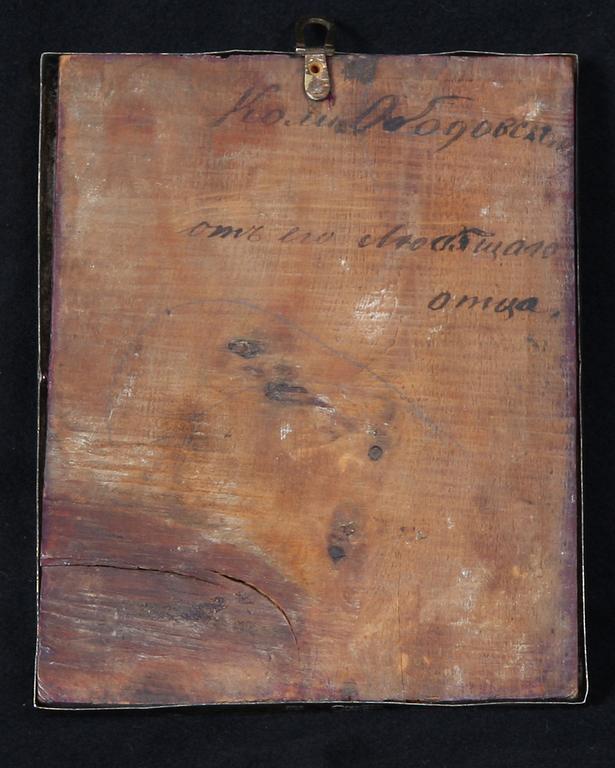 Коли Ободовскому
отъ его Любящаго
отца.